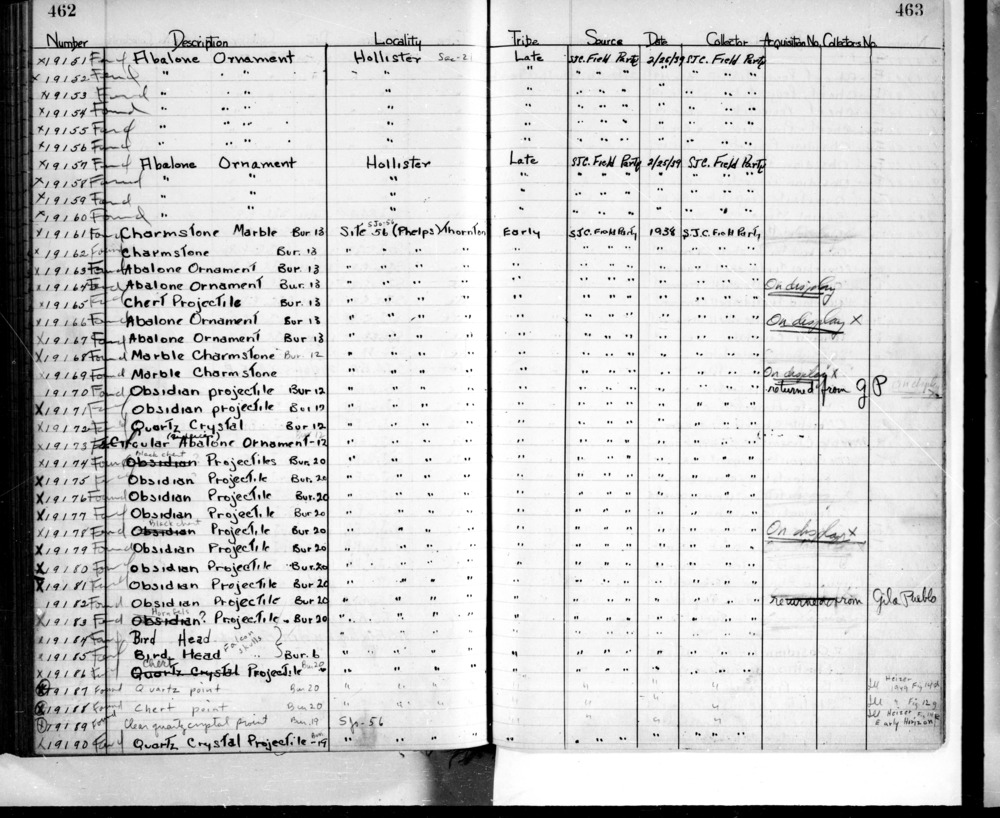 462
463
Number Description Locality Tribe Source Date Collector Acquisition No. Collectors No.
x19151 Found Abalone Ornament Hollister Late SJC. Field Party 2/25/39 SJC. Field Party
x19152 Found " " " " " " " " " " "
x19153 Found " " " " " " " " " " "
x19154 Found " " " " " " " " " " "
x19155 Found " " " " " " " " " " "
x19156 Found " " " " " " " " " " "
x19157 Found Abalone Ornament Hollister Late SJC. Field Party 2/25/39 SJC. Field Party
x19158 Found " " " " " " " " " " "
x19159 Found " " " " " " " " " " "
x19160 Found " " " " " " " " " " "
x19161 Found Charmstone Marble Bur 13 Site 56 SJo-56 (Phelps) Thornton Early SJC. Field Party 1938 S.J.C. Field Party
x19162 Found Charmstone Bur. 13 " " " " " " " " " " "
x19163 Found Abalone Ornament Bur. 13 " " " " " " " " " " "
x19164 Found Abalone Ornament Bur. 13 " " " " " " " " " " " On display
x19165 Found Chert Projectile Bur. 13 " " " " " " " " " " "
x19166 Found Abalone Ornament Bur 13 " " " " " " " " " " " On display X
x19167 Found Abalone Ornament Bur 13 " " " " " " " " " " "
x19168 Found Marble Charmstone Bur. 12 " " " " " " " " " " "
x19169 Found Marble Charmstone " " " " " " " " " " " On display x
19170 Found Obsidian projectile Bur 12 " " " " " " " " " " " returned from G P
X19171 Obsidian projectile " " " " " " " " " " "
x19172 Quartz Crystal Bur 12 " " " " " " " " " " "
x19173 Circular Abalone Ornament-12 " " " " " " " " " " "
x19174 Found Black chert Obsidian Projectiles Bur. 20 " " " " " " " " " " "
X19175 Found Obsidian Projectile Bur. 20 " " " " " " " " " " "
X19176 Found Obsidian Projectile Bur. 20 " " " " " " " " " " "
X19177 Found Obsidian Projectile Bur 20 " " " " " " " " " " "
X19178 Found Black chert Obsidian Projectile Bur 20 " " " " " " " " " " " On display X
X19179 Found Obsidian Projectile Bur 20 " " " " " " " " " " "
X19180 Found Obsidian Projectile Bur. 20 " " " " " " " " " " "
X19181 Found Obsidian Projectile Bur 20 " " " " " " " " " " "
19182 Found Obsidian Projectile Bur 20 " " " " " " " " " " " returned from Gila Pueblo
x19183 Found Hornfels Obsidian? Projectile - Bur 20 " " " " " " " " " " "
x19184 Found Bird Head " " " " " " " " " " "
x19185 Found Bird Head Falcon skulls Bur. 6 " " " " " " " " " " "
x19186 Chert Quartz Crystal Projectile Bur. 20 " " " " " " " " " " "
x19187 Found Quartz point Bur 20 " " " " " " " Ill Heizer 1949 Fig 14d
x19188 Found Chert point Bur 20 " " " " " " " Ill " Fig 12g
19189 Found Clear quartz crystal point Bur. 19 SJo-56 " " " Ill Heizer Early Horizon
x19190 Found Quartz Crystal Projectile - Bur. 19 " " " " " " " " " " "